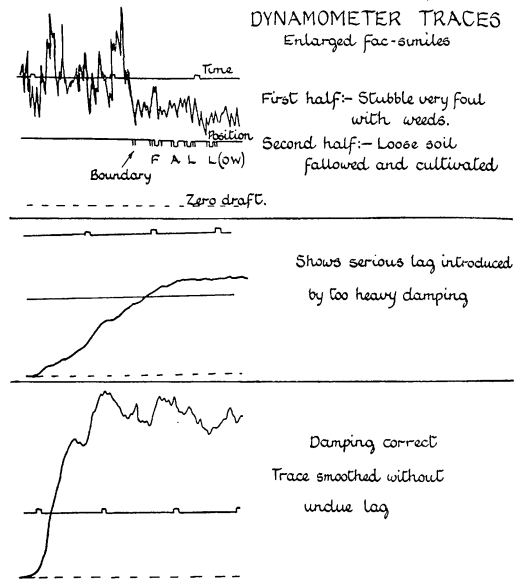 DYNAMOMETER TRACES
Enlarged fac-similes
Time
First half:- Stubble very foul
with weeds.
Position
Second half:- Loose soil
fallowed and cultivated
F A L L (OW)
Boundary
Zero draft.
Shows serious lag introduced
by too heavy damping
Damping correct
Trace smoothed without
undue lag